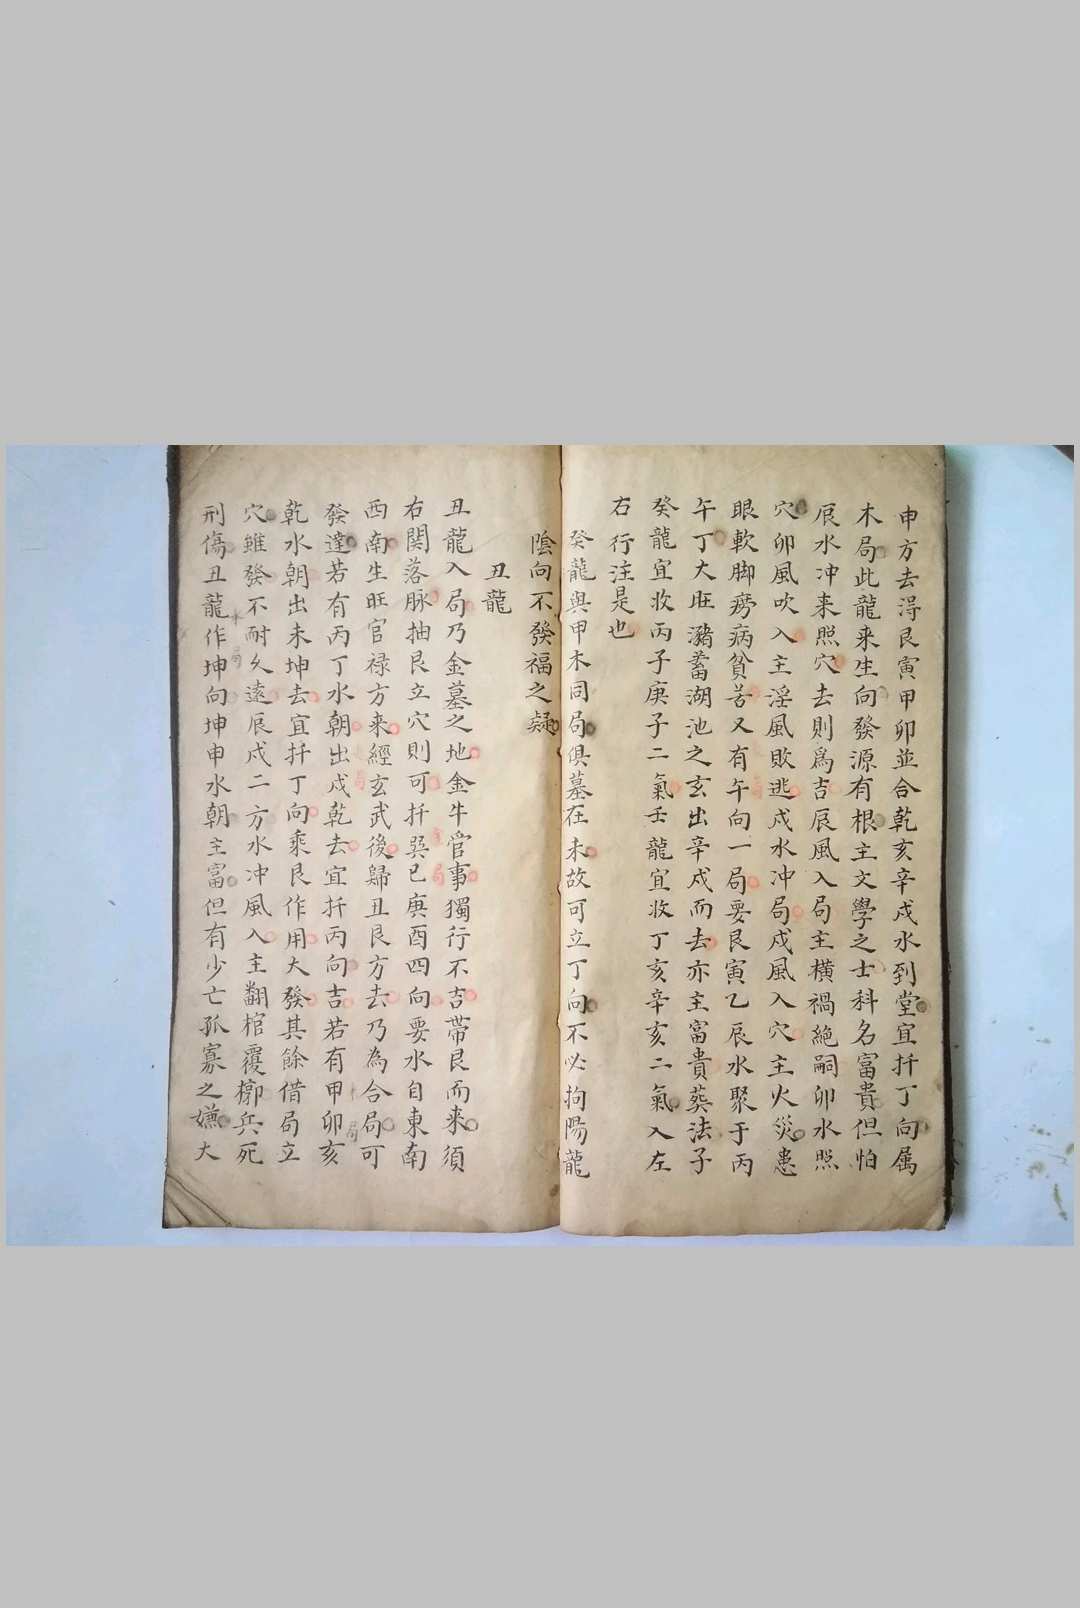 申方去淂艮寅甲卯並合乾亥辛戌水到堂宜扦丁向属
木局此龍來生向發源有根主文學之士科名富貴但怕
辰水冲来照穴去則爲吉辰風入局主横禍絶嗣卯水照
穴卯風吹入主淫風敗逃戌水冲局戌風入穴主火災患
眼軟脚痨病貧苦又有午向一局要艮寅乙辰水聚于丙
午丁大旺瀦蓄湖池之玄出辛戍而去亦主富貴葬法子
癸龍宜收丙子庚子二氣壬龍宜收丁亥辛亥二氣入左
右行注是也
癸龍與甲木同局俱墓在未故可立丁向不必拘陽龍
陰向不發福之疑
丑龍
丑龍入局乃金墓之地金牛管事獨行不吉帶艮而来須
右関落脉抽艮立穴則可扦巽巳庚酉四向要水自東南
西南生旺官禄方来經玄武後歸丑艮方去乃為合局可
發達若有丙丁水朝出戍乾去宜扦丙向吉若有甲卯亥
乾水朝出未坤去宜扦丁向乘艮作用大發其餘借局立
穴雖發不耐久遠辰戍二方水冲風入主翻棺覆槨兵死
刑傷丑龍作坤向坤申水朝主富但有少亡孤寡之嫌大
局
局
局
局